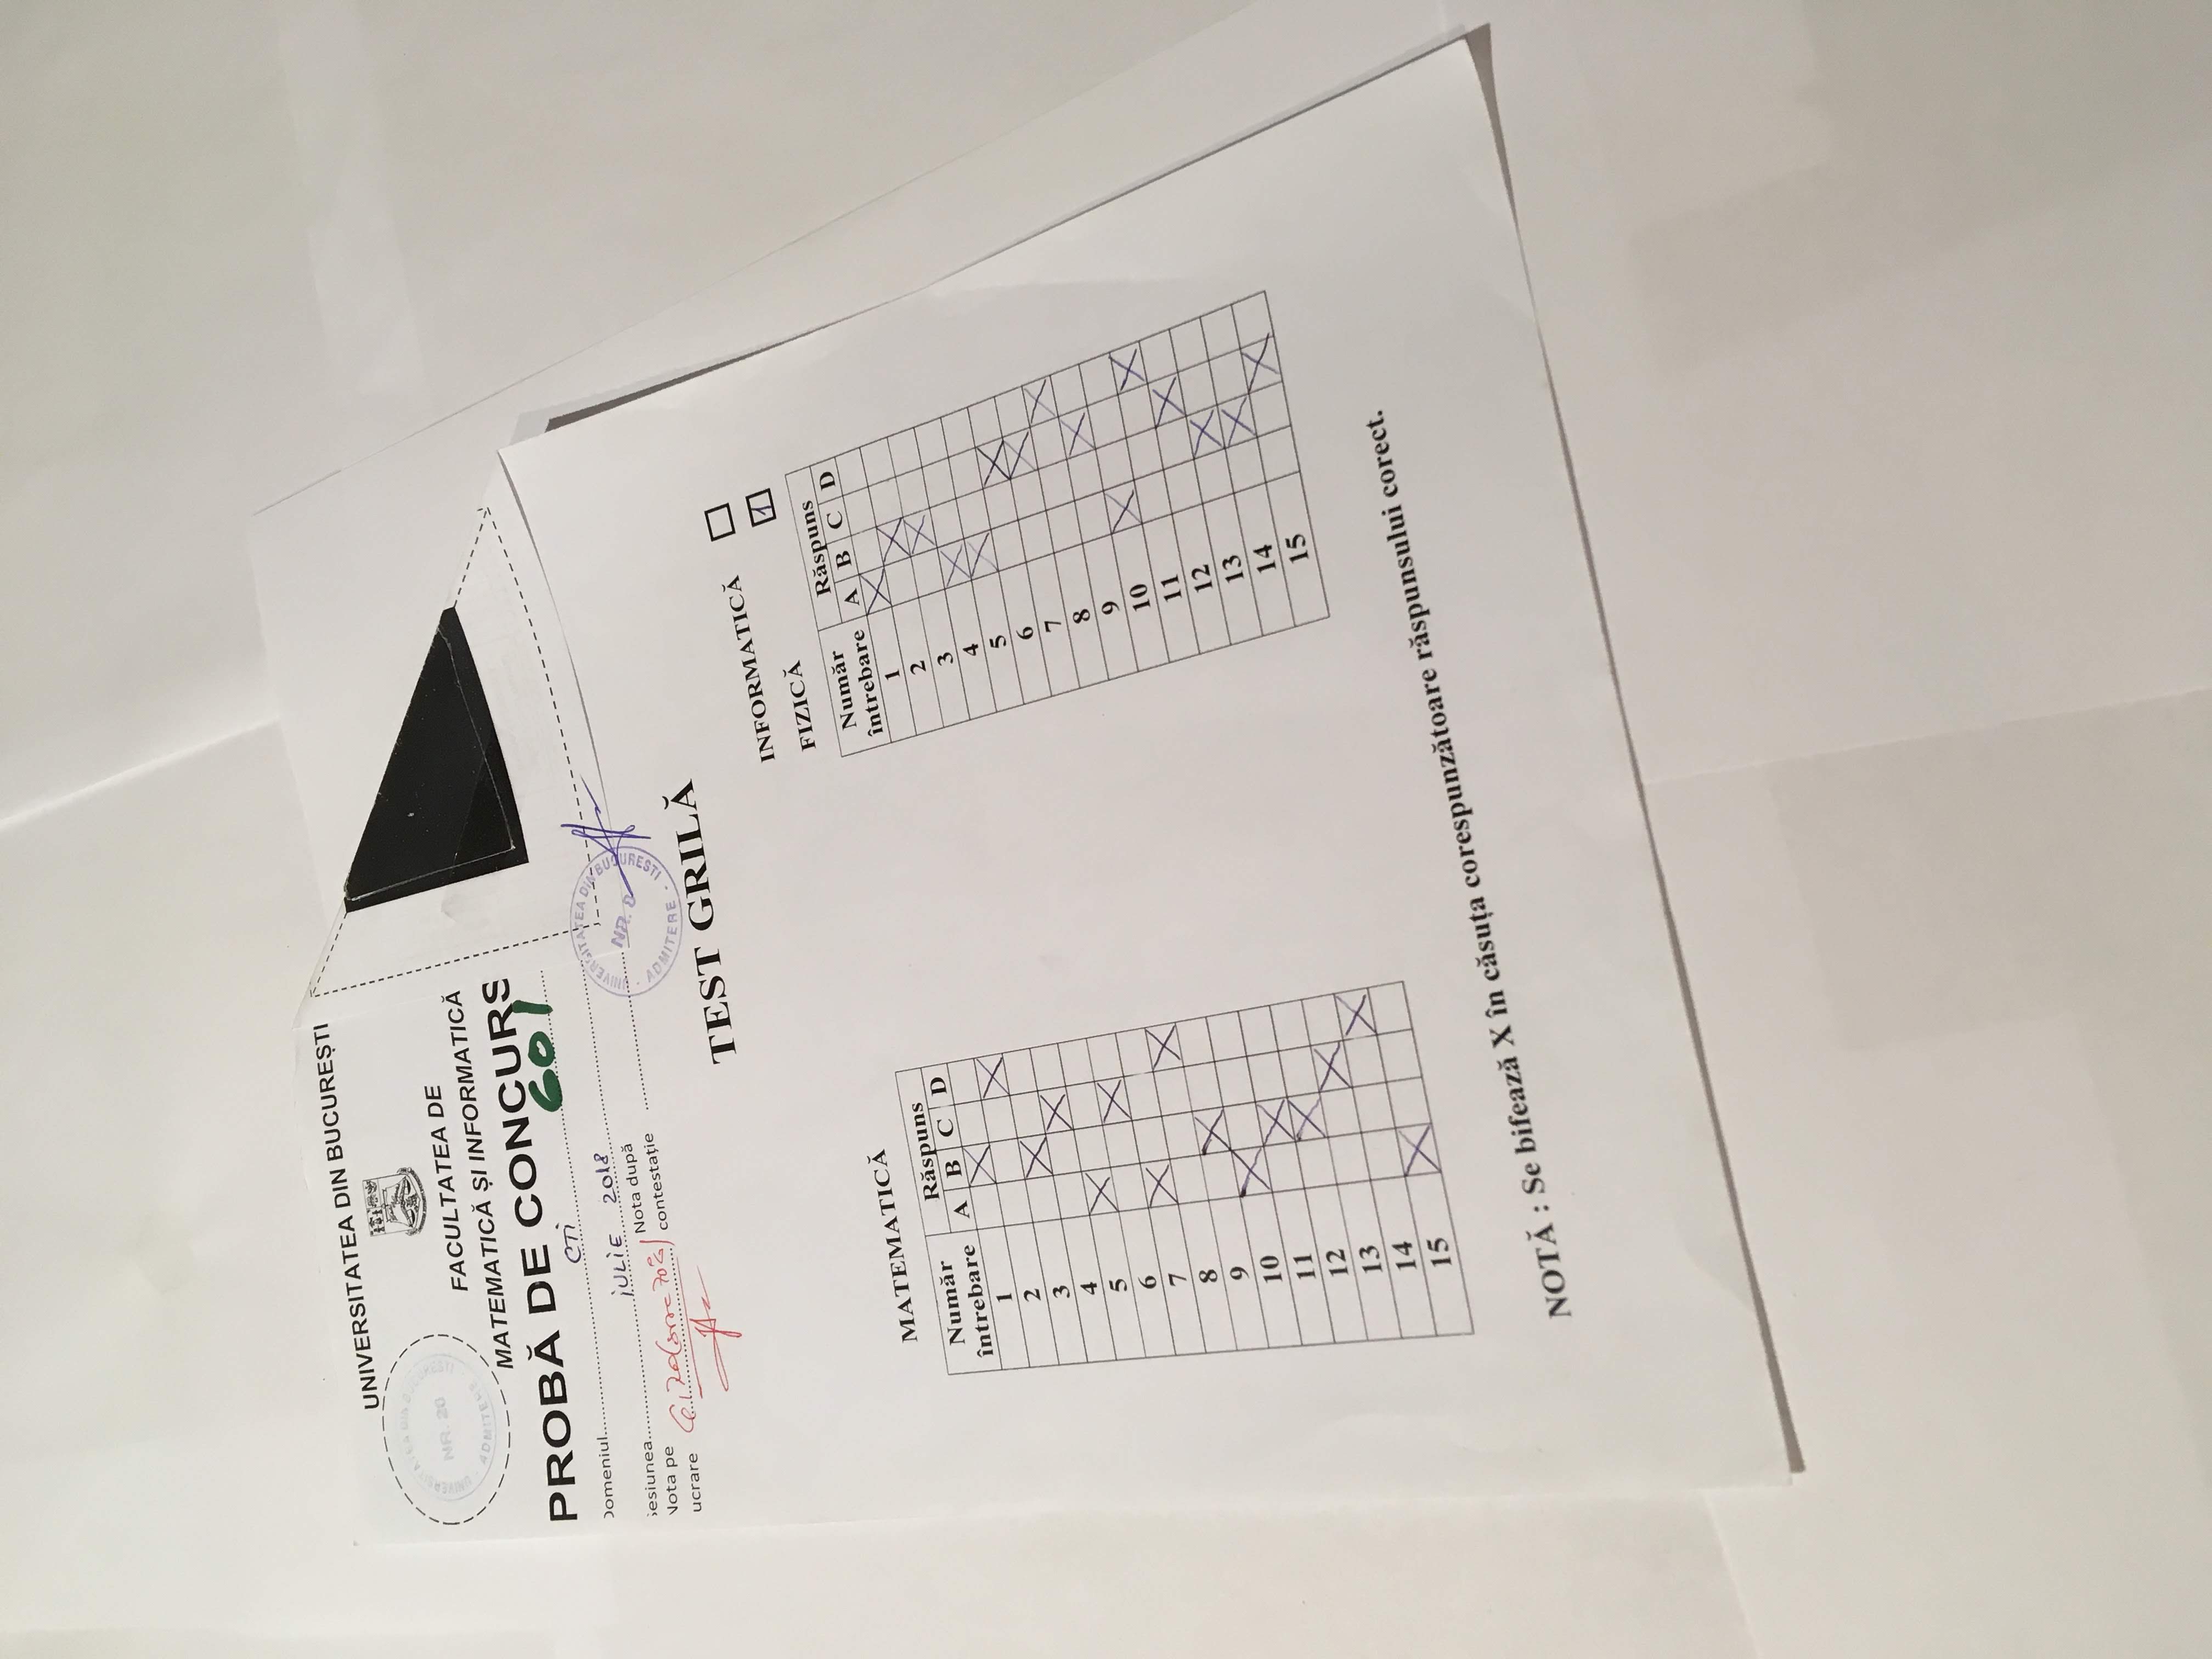 UNIVERSITATEA DIN BUCUREȘTI
UNIVERSITATEA DIN BUCUREȘTI
NR. 20
ADMITERE
FACULTATEA DE
MATEMATICĂ ȘI INFORMATICĂ
PROBĂ DE CONCURS
601
Domeniul CTI
Sesiunea IULIE 2018
Nota pe
lucrare 6,70 (șase 70%)
Nota după
contestație
UNIVERSITATEA DIN BUCUREȘTI
NR. 8
ADMITERE
TEST GRILĂ
INFORMATICĂ
FIZICĂ 1
MATEMATICĂ
Număr întrebare Răspuns
A B C D
1 X
2 X
3 X
4 X
5 X
6 X
7 X
8 X
9 X
10 X
11 X
12 X
13 X
14 X
15 X
Număr întrebare Răspuns
A B C D
1 X
2 X
3 X
4 X
5 X
6 X
7 X
8 X
9 X
10 X
11 X
12 X
13 X
14 X
15 X
NOTĂ : Se bifează X în căsuța corespunzătoare răspunsului corect.